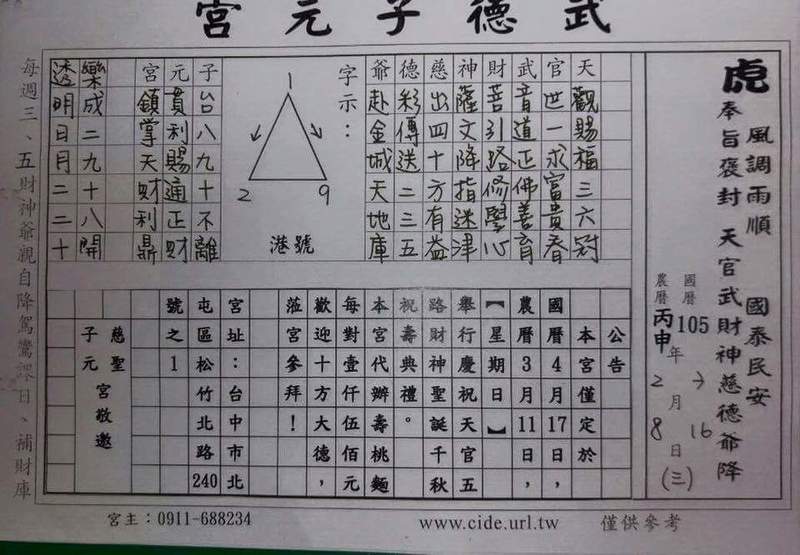 武德子元宮
虎
風調雨順 國泰民安
奉旨褒封 天官武財神慈德爺降
國曆105年 月16日
農曆丙申年2月8日(三)
天觀賜福三六冠
官世一求富貴春
武音道正佛善育
財菩引路修學心
神薩文降指迷津
慈出四十方有益
德彩傳送二三五
爺赴金城天地庫
字示：
1
2
9
港號
子台八九十不離
元貫利賜通正財
宮領掌天財利鼎
樂成二九十八開
透明日月二二十
公告
本宮僅定於
國曆4月17日，
農曆3月11日，
【星期日】
舉行慶祝天官五
路財神聖誕千秋
祝壽典禮。
本宮代辦壽桃麵
每對壹仟伍佰元
歡迎十方大德，
蒞宮參拜！
宮址：台中市北
屯區松竹北路240
號之1
慈聖
子元
宮敬邀
每週三、五財神爺親自降駕鸞課日、補財庫
宮主：0911-688234
www.cide.url.tw
僅供參考